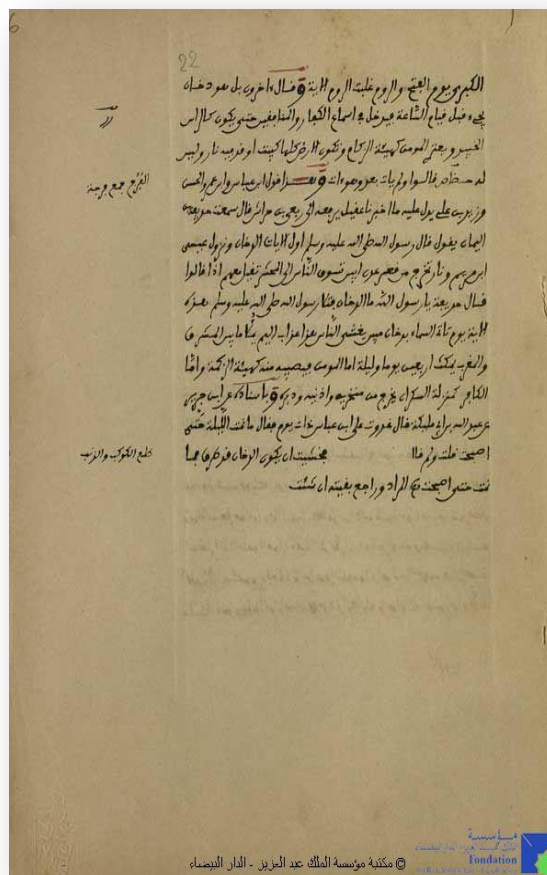 22
الكبرى يوم الفتح والروم غلبت الروم الاية وقال ءاخرون بل هو دخان
يجيء قبل قيام الساعة فيدخل في اسماع الكفار والمنافقين حتى يكون كالراس
الحنيذ ويعتري المومن كهيئة الزكام وتكون الارض كلها كبيت اوقد فيه نار وليس
له خصاص قالوا ولم يات بعد وهو ءات وهذا قول ابن عباس وابن عمر والحسن
وزيد بن علي يدل عليه ما اخبرنا عقيل يرفعه الى ربعي بن حراش قال سمعت حذيفة بن
اليمان يقول قال رسول الله صلى الله عليه وسلم اول الايات الدخان ونزول عيسى
ابن مريم ونار تخرج من قعر عدن ابين تسوق الناس الى المحشر تقيل معهم اذا قالوا
قال حذيفة يا رسول الله ما الدخان فتلا رسول الله صلى الله عليه وسلم هذه
الاية يوم تاتي السماء بدخان مبين يغشى الناس هذا عذاب اليم يملا ما بين المشرق
والمغرب يمكث اربعين يوما وليلة اما المومن فيصيبه منه كهيئة الزكمة واما
الكافر كمنزلة السكران يخرج من منخريه واذنيه ودبره وباسناده عن ابن جريج
عن عبد الله بن ابي مليكة قال غدوت على ابن عباس ذات يوم فقال ما نمت الليلة حتى
اصبحت قلت ولم قال طلع الكوكب ذو الذنب فخشيت ان يكون الدخان قد طرق فما
نمت حتى اصبحت المراد وراجع بقيته ان شئت
© مكتبة مؤسسة الملك عبد العزيز - الدار البيضاء
مؤسسة
Fondation